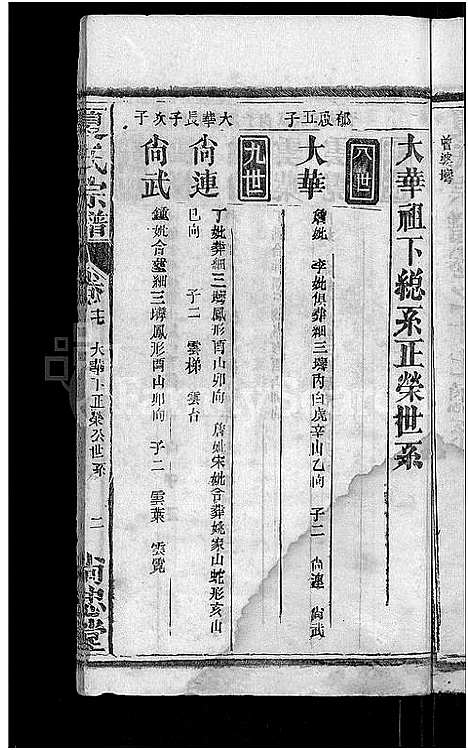 曾婆墈
大華祖下總系正榮世系
八世
郁辰五子
大華
詹妣 李妣俱葬細三塝內白虎辛山乙向 子二 尚連 尚武
九世
大華長子
尚連
丁妣葬細三塝鳳形酉山卯向 詹妣宋妣合葬姚家山蛇形亥山
巳向 子二 雲梯 雲台
次子
尚武
鍾妣合葬細三塝鳳形酉山卯向 子二 雲葉 雲覽
宗譜
大華下正榮公世系
二